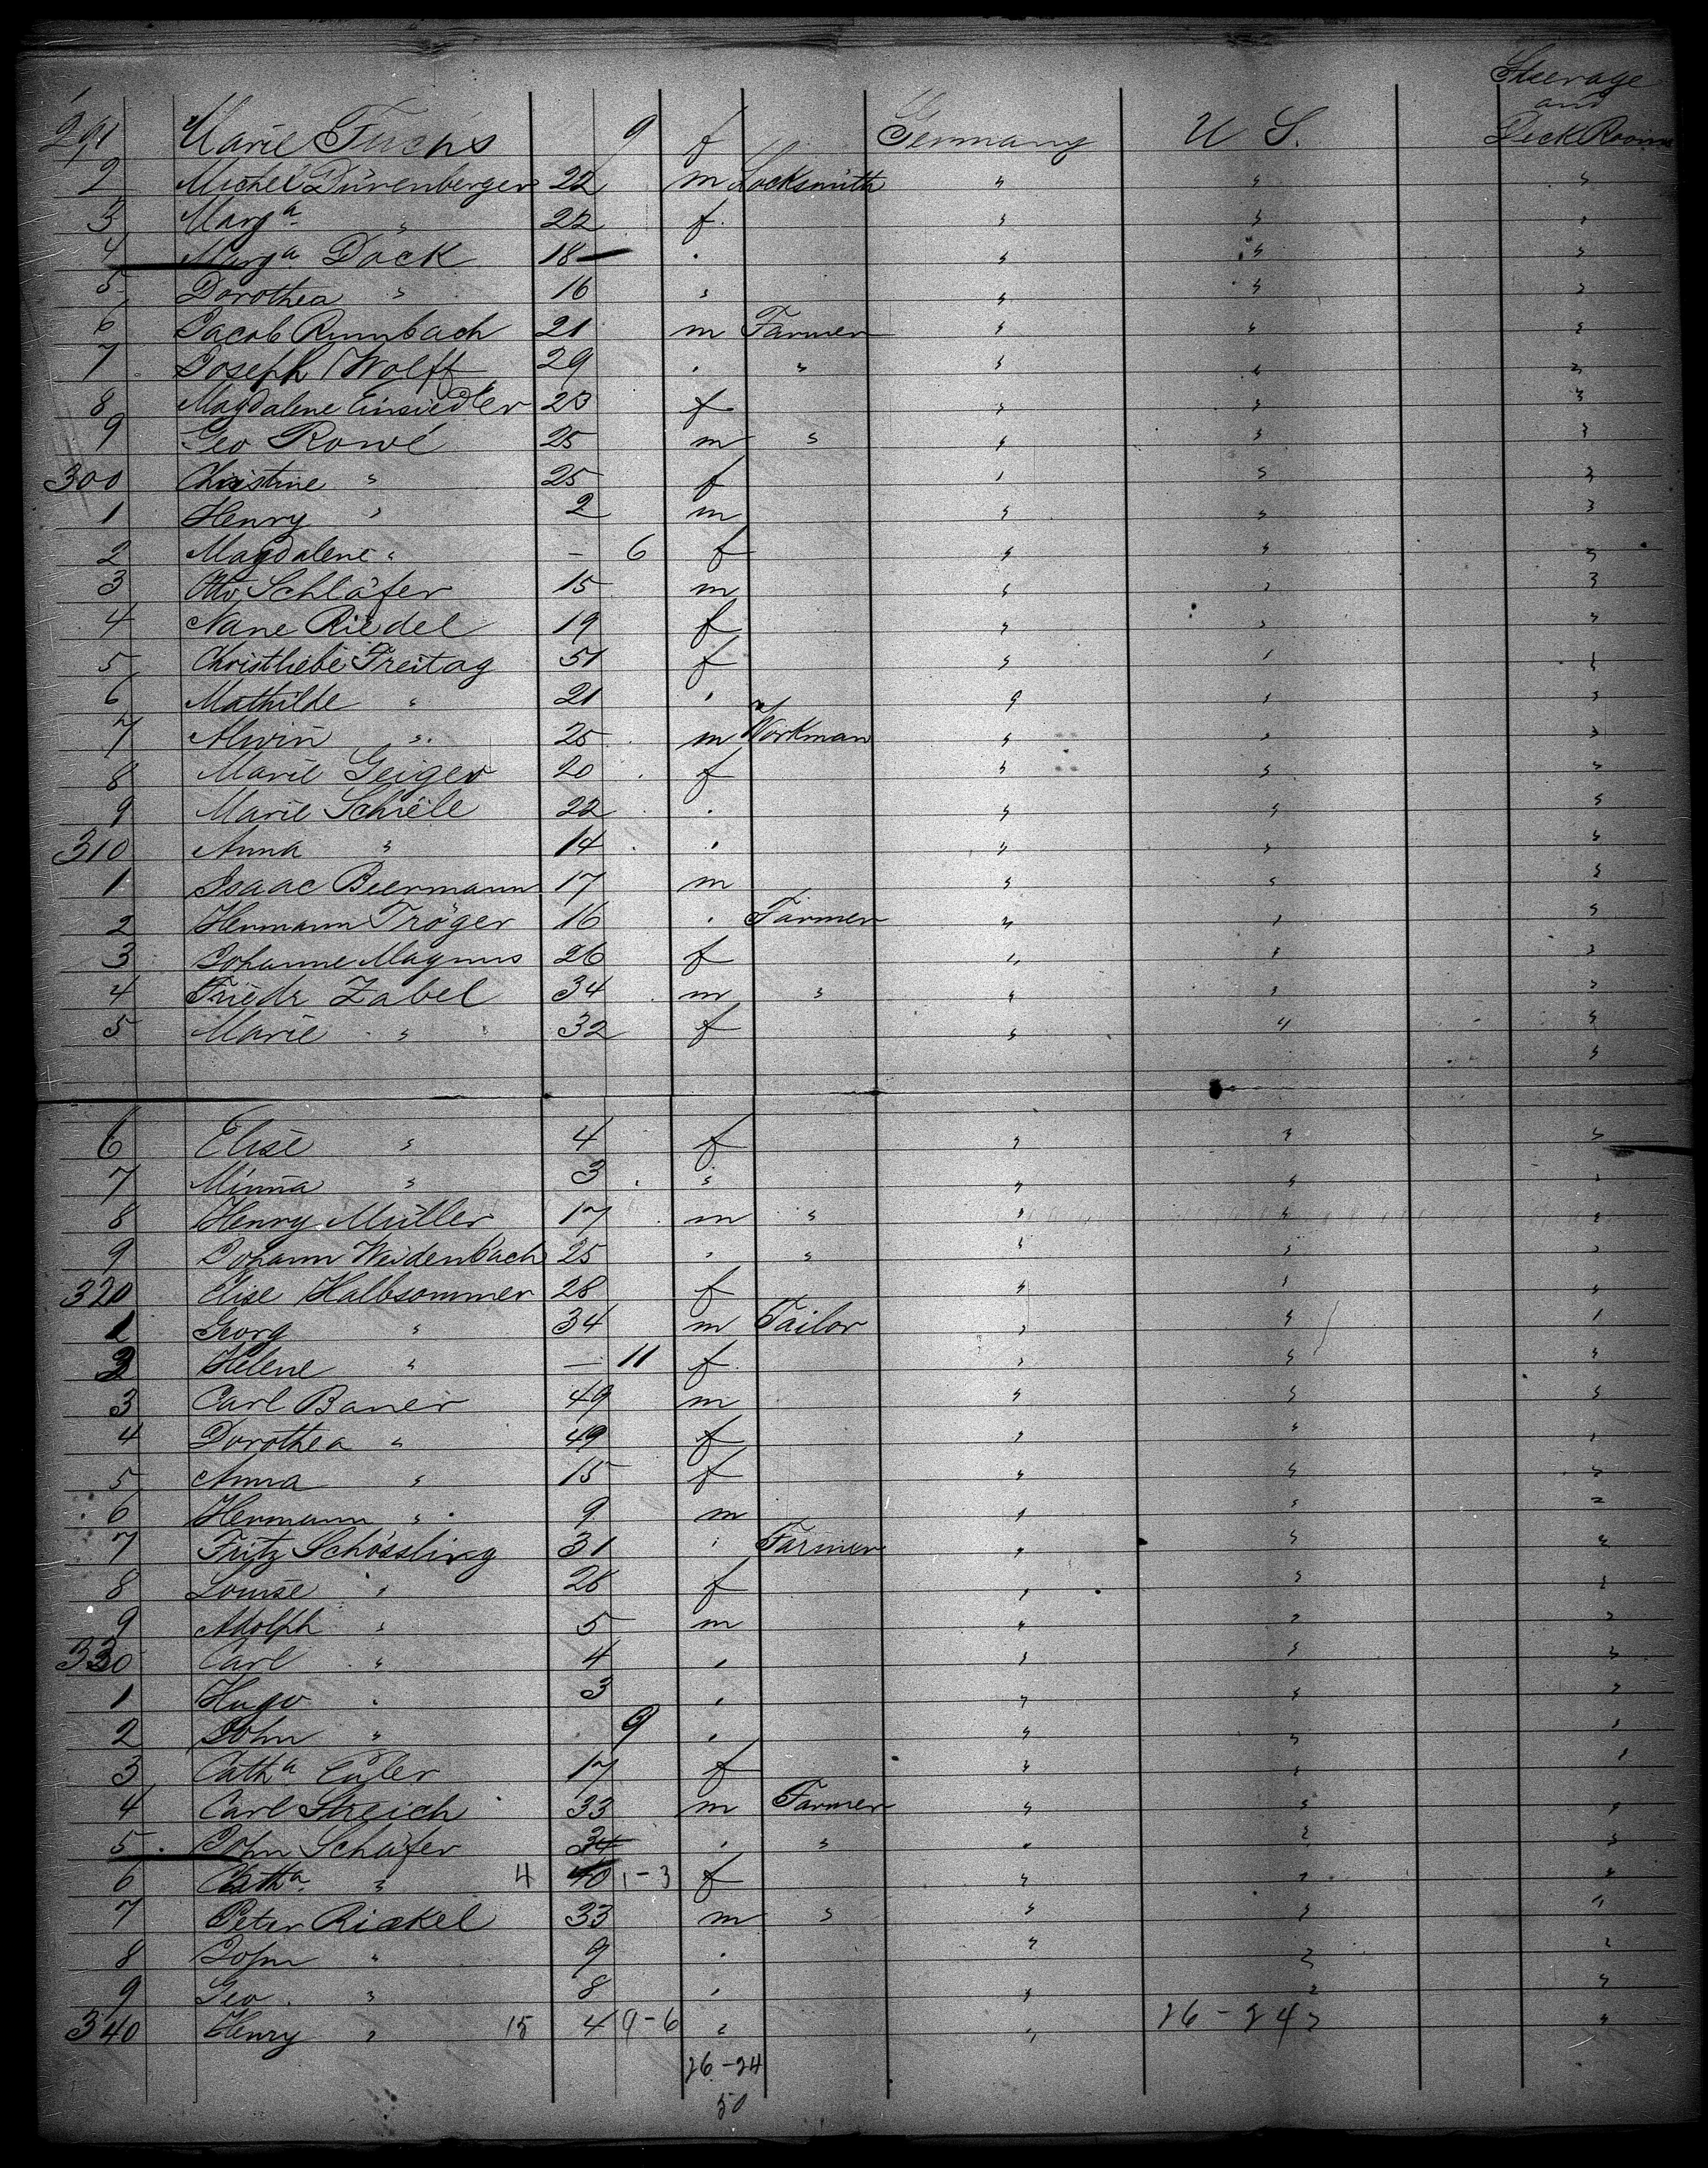 Steerage
and
291 Marie Fuchs 9 f Germany U S. Deck Room
2 Michel Dürenberger 22 m Locksmith " " "
3 Marg.a " 22 f. " " "
4 Marg.a Dock 18 " " " "
5 Dorothea " 16 " " " "
6 Jacob Rumbach 21 m Farmer " " "
7 Joseph Wolff 29 " " " " "
8 Magdalene Einsiedler 23 f " " "
9 Geo Rowé 25 m " " " "
300 Christine " 25 f " " "
1 Henry " 2 m " " "
2 Magdalene " — 6 f " " "
3 Otto Schläfer 15 m " " "
4 Nane Riedel 19 f " " "
5 Christliebe Freitag 51 f " " "
6 Mathilde " 21 " " " "
7 Alwin " 25 m Workman " " "
8 Marie Geiger 20 f " " "
9 Marie Schiele 22 " " " "
310 Anna " 14 " " " "
1 Isaac Beermann 17 m " " "
2 Hermann Tröger 16 " Farmer " " "
3 Johanne Magnus 26 f " " "
4 Friedr Zabel 34 m " " " "
5 Marie " 32 f " " "
"
6 Elise " 4 f " " "
7 Minna " 3 " " " "
8 Henry Müller 17 m " " " "
9 Johann Weidenbach 25 " " " " "
320 Elise Halbsommer 28 f " " "
1 Georg " 34 m Tailor " " "
2 Helene " — 11 f " " "
3 Carl Baner 49 m " " "
4 Dorothea " 49 f " " "
5 Anna " 15 f " " "
6 Hermann " 9 m " " "
7 Fritz Schössling 31 " Farmer " " "
8 Louise " 28 f " " "
9 Adolph " 5 m " " "
330 Carl " 4 " " " "
1 Hugo " 3 " " " "
2 John " 9 " " " "
3 Cath.a Euler 17 f " " "
4 Carl Streich 33 m Farmer " " "
5 John Schäfer 34 " " " " "
6 Cath.a " 4 40 1-3 f " " "
7 Peter Rickel 33 m " " " "
8 John " 9 " " " "
9 Geo " 8 " " " "
340 Henry " 15 4 9-6 " " 26-24 " "
26-24
50